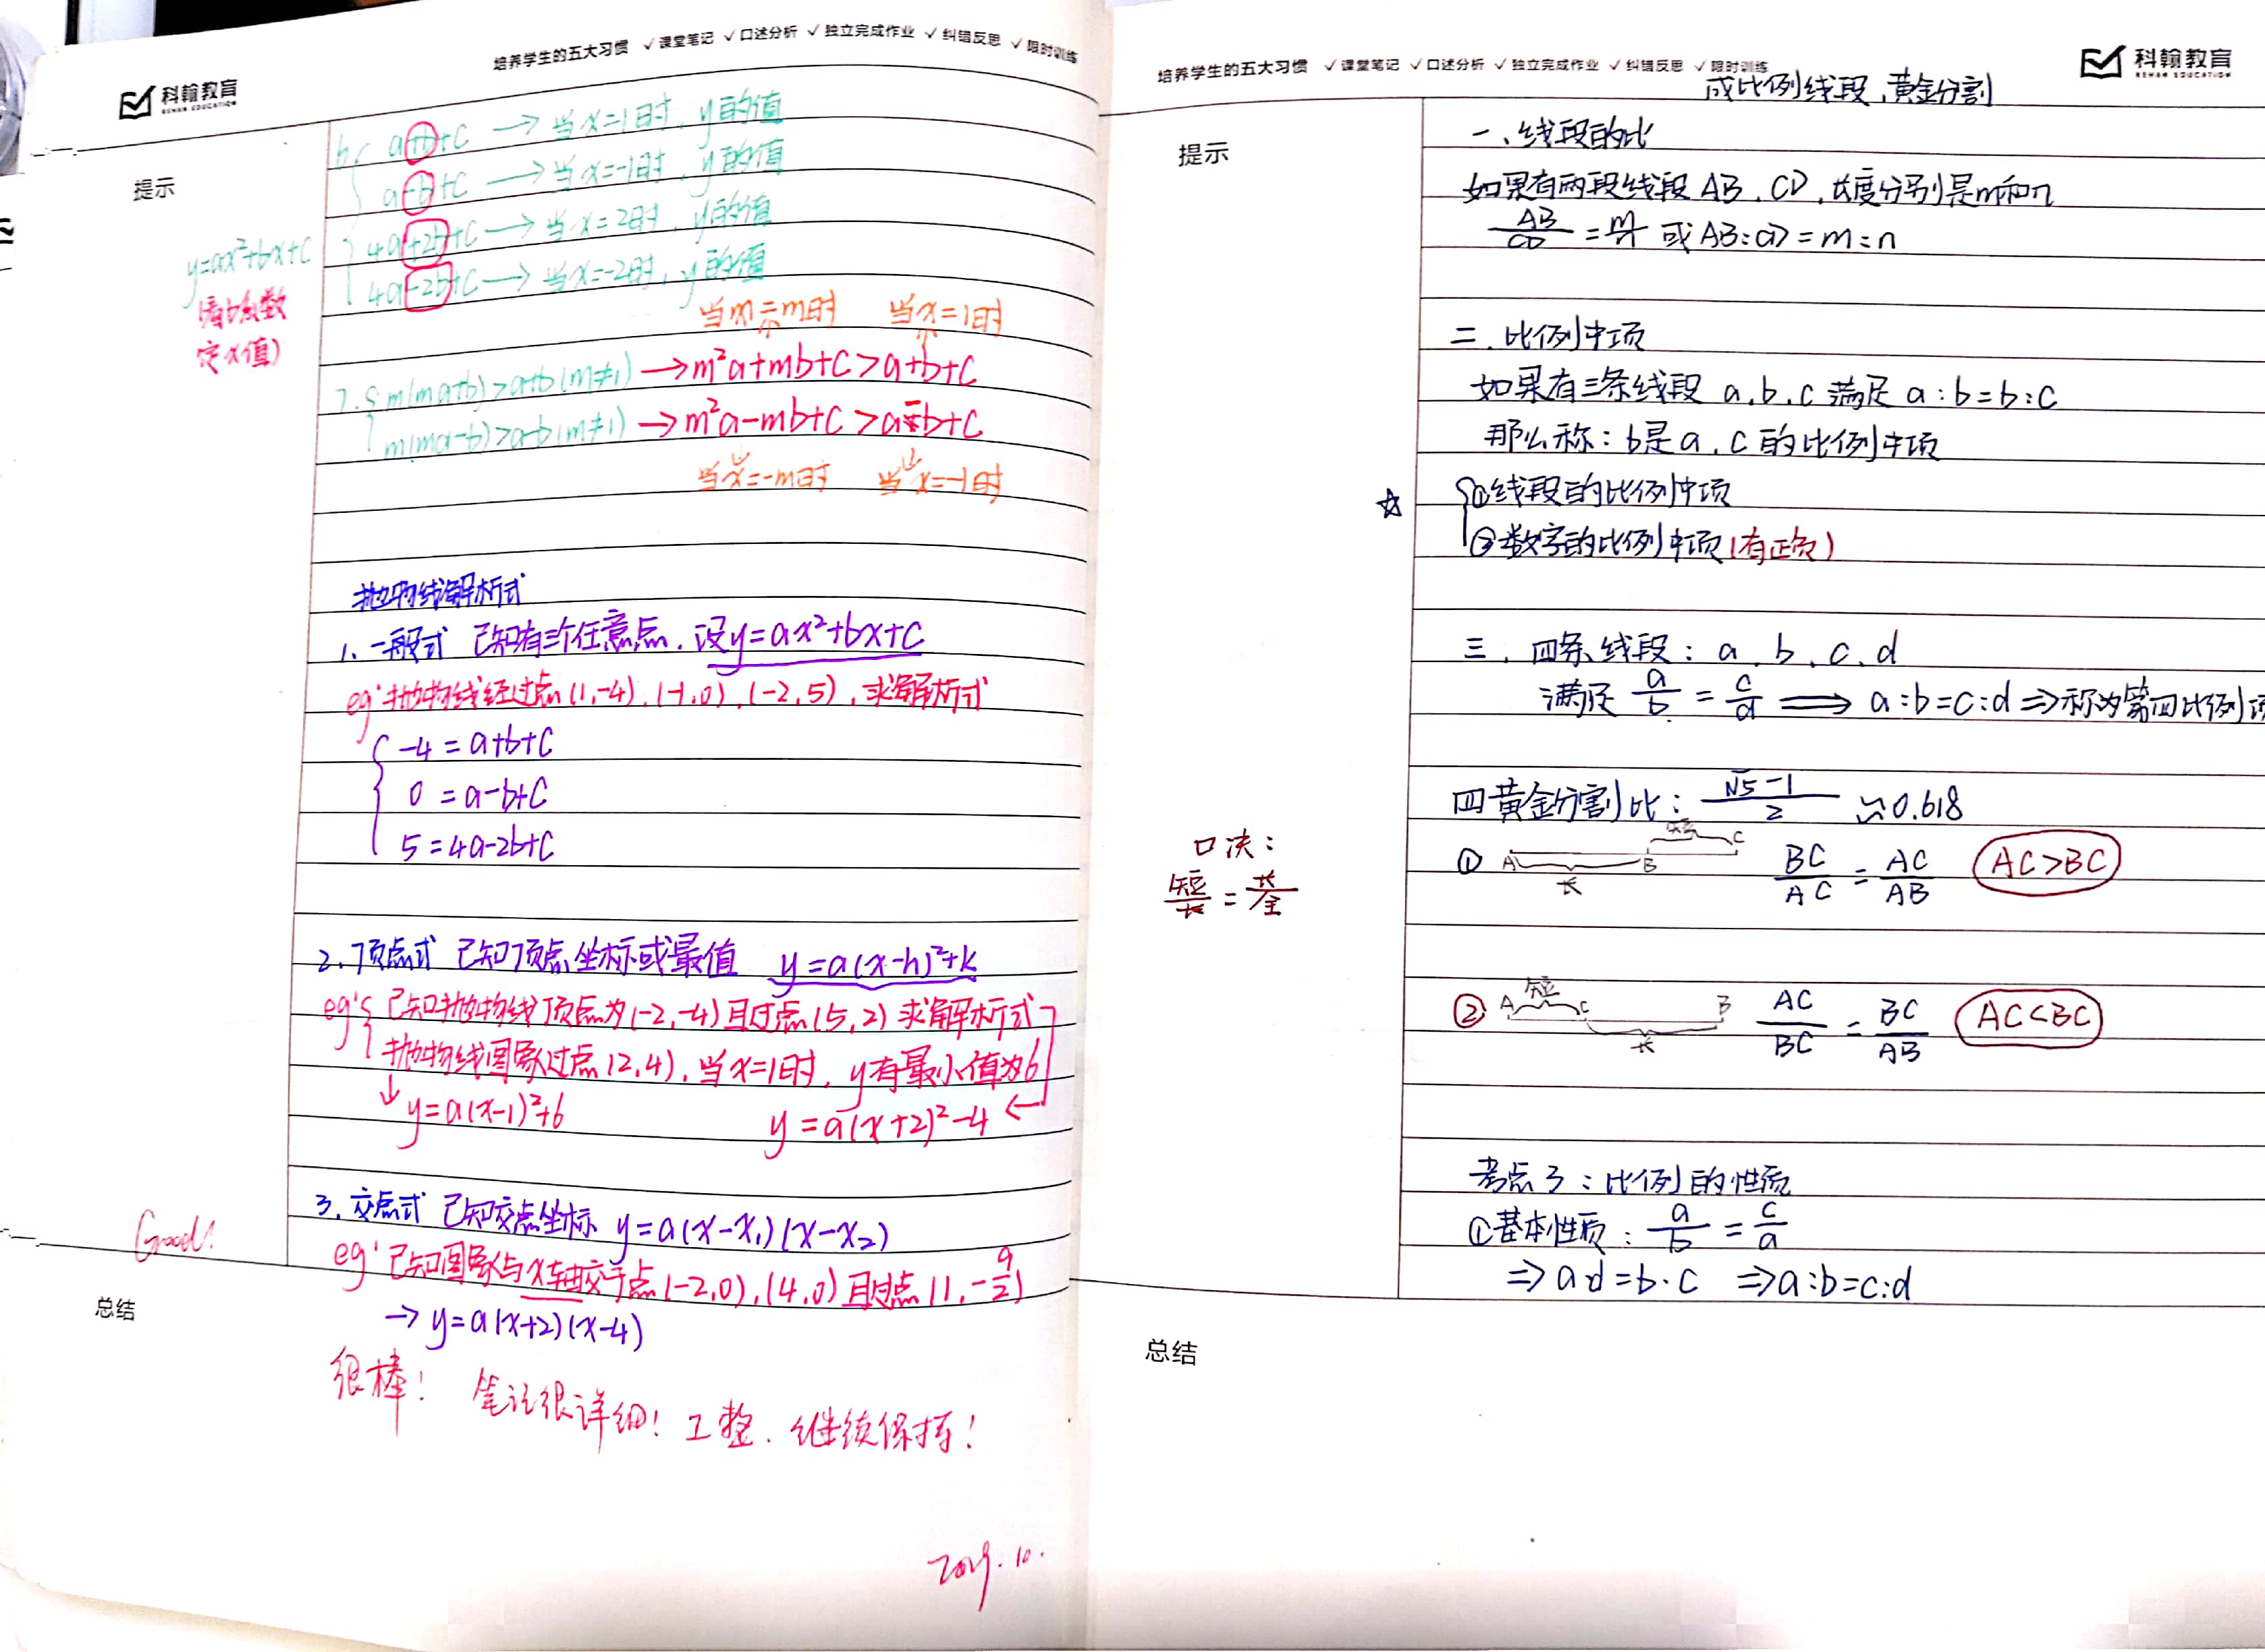 培养学生的五大习惯 ✓课堂笔记 ✓口述分析 ✓独立完成作业 ✓纠错反思 ✓限时训练
科翰教育
KEHAN EDUCATION
提示
y=ax²+bx+c
(看b系数
定x值)
6. a+b+c → 当x=1时, y的值
a-b+c → 当x=-1时, y的值
4a+2b+c → 当x=2时, y的值
4a-2b+c → 当x=-2时, y的值
当x=m时 当x=1时
7. m(ma+b)>a+b(m≠1) → m²a+mb+c>a+b+c
m(ma-b)>a-b(m≠1) → m²a-mb+c>a-b+c
当x=-m时 当x=-1时
抛物线解析式
1、一般式 已知有三个任意点, 设y=ax²+bx+c
eg: 抛物线经过点(1,-4), (-1,0), (-2,5), 求解析式
-4=a+b+c
0=a-b+c
5=4a-2b+c
2、顶点式 已知顶点坐标或最值 y=a(x-h)²+k
eg: 已知抛物线顶点为(-2,-4)且过点(5,2)求解析式
抛物线图象过点(2,4), 当x=1时, y有最小值为6
↓ y=a(x-1)²+6 y=a(x+2)²-4 ←
3、交点式 已知交点坐标 y=a(x-x₁)(x-x₂)
eg: 已知图象与x轴交于点(-2,0), (4,0)且过点(1,-9/2)
→ y=a(x+2)(x-4)
Good!
总结
很棒! 笔记很详细! 工整. 继续保持!
2019.10.
培养学生的五大习惯 ✓课堂笔记 ✓口述分析 ✓独立完成作业 ✓纠错反思 ✓限时训练
科翰教育
KEHAN EDUCATION
成比例线段、黄金分割
提示
一、线段的比
如果有两段线段AB、CD, 长度分别是m和n
AB/CD=m/n 或AB:CD=m:n
二、比例中项
如果有三条线段 a.b.c 满足 a:b=b:c
那么称: b是a, c的比例中项
☆ ①线段的比例中项
②数字的比例中项(有正负)
三、四条线段: a、b、c、d
满足 a/b=c/d ⟹ a:b=c:d ⇒称为第四比例项
四 黄金分割比: (√5-1)/2 ≈0.618
口决:
短/长=长/全
① A B C 短 长 BC/AC=AC/AB AC>BC
② A C B 短 长 AC/BC=BC/AB AC<BC
考点3: 比例的性质
①基本性质: a/b=c/d
⇒a·d=b·c ⇒a:b=c:d
总结